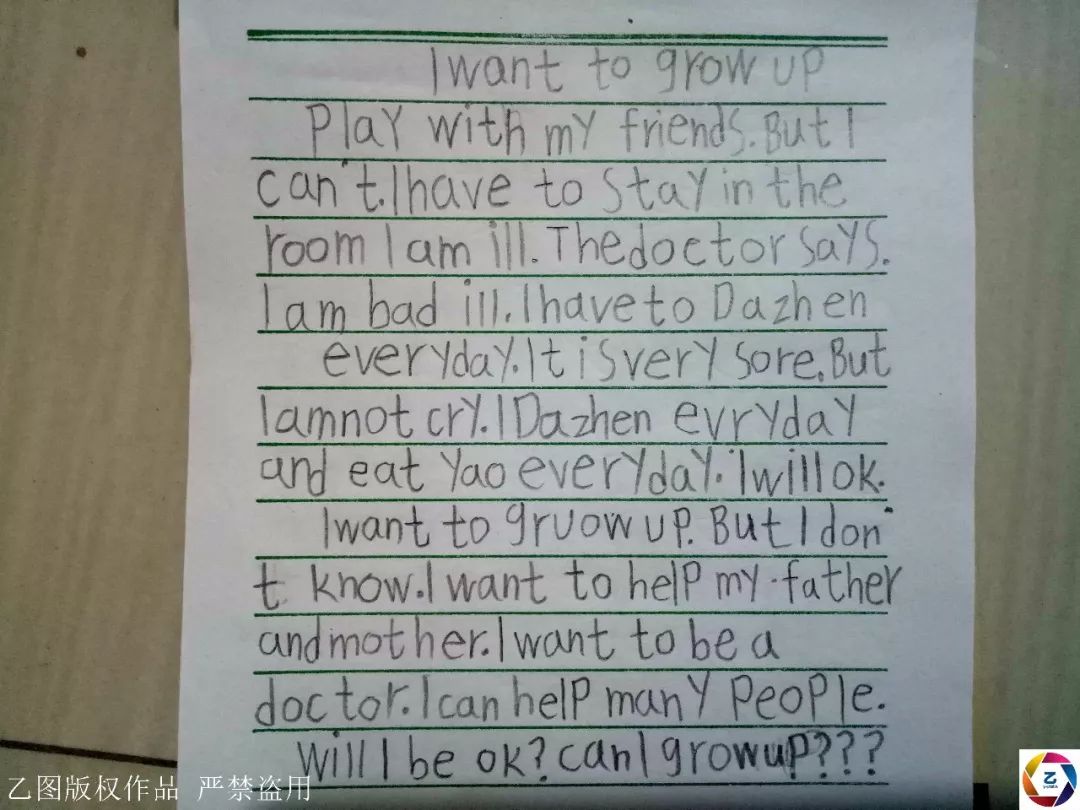 I want to grow up
Play with my friends. But I
can't. I have to stay in the
room I am ill. The doctor says.
I am bad ill. I have to Dazhen
everyday. It is very sore. But
I am not cry. I Dazhen evryday
and eat Yao everyday. I will ok.
I want to gruow up. But I don'
t know. I want to help my father
and mother. I want to be a
doctor. I can help many people.
Will I be ok? can I grow up???
乙图版权作品 严禁盗用
乙